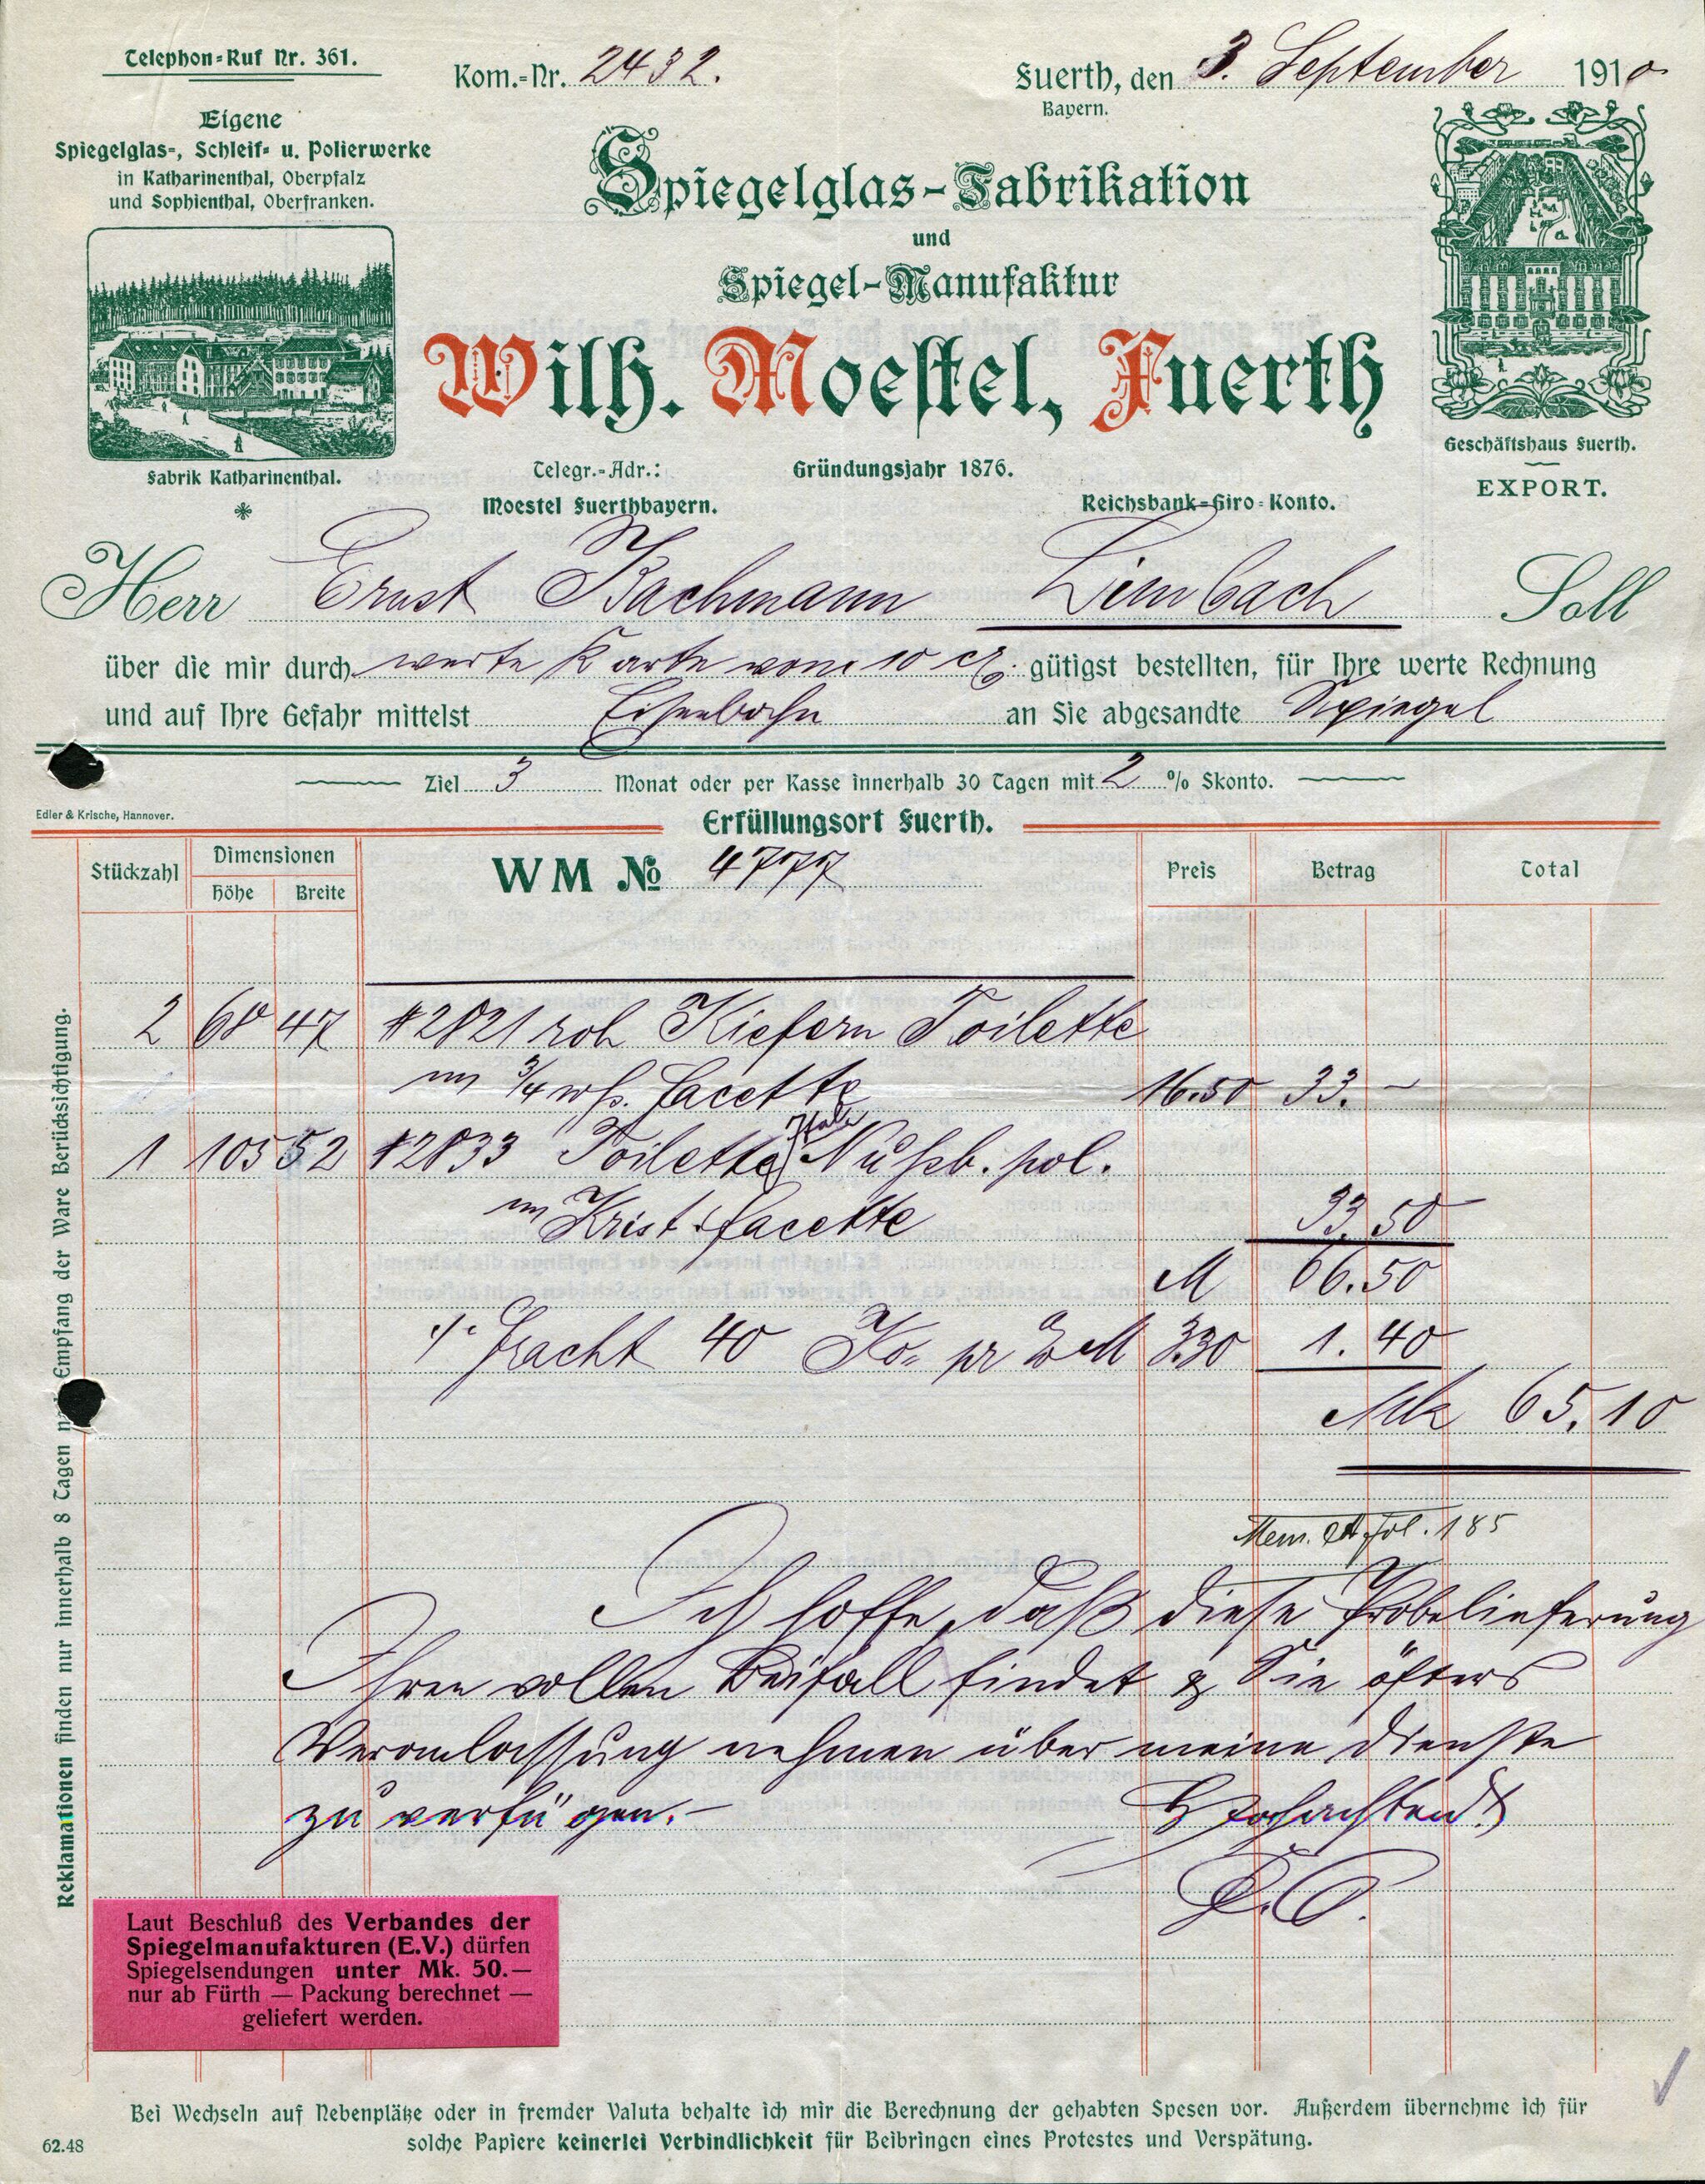 Telephon-Ruf Nr. 361.
Kom.-Nr. 2432.
Fuerth, den 3. September 1910
Bayern.
Eigene
Spiegelglas-, Schleif- u. Polierwerke
in Katharinenthal, Oberpfalz
und Sophienthal, Oberfranken.
Fabrik Katharinenthal.
Spiegelglas-Fabrikation
und
Spiegel-Manufaktur
Wilh. Moestel, Fuerth
Telegr.-Adr.:
Moestel Fuerthbayern.
Gründungsjahr 1876.
Reichsbank-Giro-Konto.
Geschäftshaus Fuerth.
EXPORT.
Herr Ernst Bachmann Limbach Soll
über die mir durch werte Karte vom 10 cr. gütigst bestellten, für Ihre werte Rechnung
und auf Ihre Gefahr mittelst Eisenbahn an Sie abgesandte Spiegel
Ziel 3 Monat oder per Kasse innerhalb 30 Tagen mit 2 % Skonto.
Edler & Krische, Hannover.
Erfüllungsort Fuerth.
Stückzahl Dimensionen WM No 4777 Preis Betrag Total
Höhe Breite
2 68 47 #2821 roh Kiefern Toilette
m 3/4 wß. Facette 16.50 33.-
Ital.
1 105 52 #2833 Toilette Nußb. pol.
m Krist. Facette 33.50
M 66.50
./. Fracht 40 Ko. pr % M 3.30 1.40
Mk 65.10
Mem. fol. 185
Ich hoffe, daß diese Probelieferung
Ihren vollen Beifall findet & Sie öfters
Veranlassung nehmen über meine Dienste
zu verfügen.-
Hochachtend!
Reklamationen finden nur innerhalb 8 Tagen nach Empfang der Ware Berücksichtigung.
Laut Beschluß des Verbandes der
Spiegelmanufakturen (E.V.) dürfen
Spiegelsendungen unter Mk. 50.—
nur ab Fürth — Packung berechnet —
geliefert werden.
Bei Wechseln auf Nebenplätze oder in fremder Valuta behalte ich mir die Berechnung der gehabten Spesen vor. Außerdem übernehme ich für
solche Papiere keinerlei Verbindlichkeit für Beibringen eines Protestes und Verspätung.
62.48